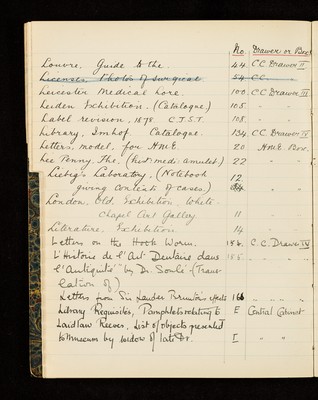 No. Drawer or Box
Louvre, Guide to the. 44. C.C. Drawer II
Licenses Photos of surgical 54 C.C.
Leicester Medical Lore. 100. C.C. Drawer III
Leiden Exhibition. (Catalogue) 105. " "
Label revision, 1878 C.J.S.T. 108. " "
Library, Imhof. Catalogue. 134. C.C. Drawer IV
Letters, model, for H.M.E. 20 H.M.E. Box.
Lee Penny, The, (hist. medi: amulet) 22 " "
Liebig's Laboratory, (Notebook 12
giving contents of cases.) " "
London, Old, Exhibition White-
Chapel Art Galley 11 " "
Literature, Exhibition 14 " "
Letters on the Hook Worm. 186. C.C. Drawer IV
L'Histoire de l'Art Dentaire dans 188. " "
l'Antiquité" by Dr. (Trans-
lation of)
Letters from Sir Lauder Brunton's effects 166 " "
Library Requisites, Pamphlets relating to E Central Cabinet
Laidlaw Reeves, List of objects presented
to Museum by widow of late Dr. I " "